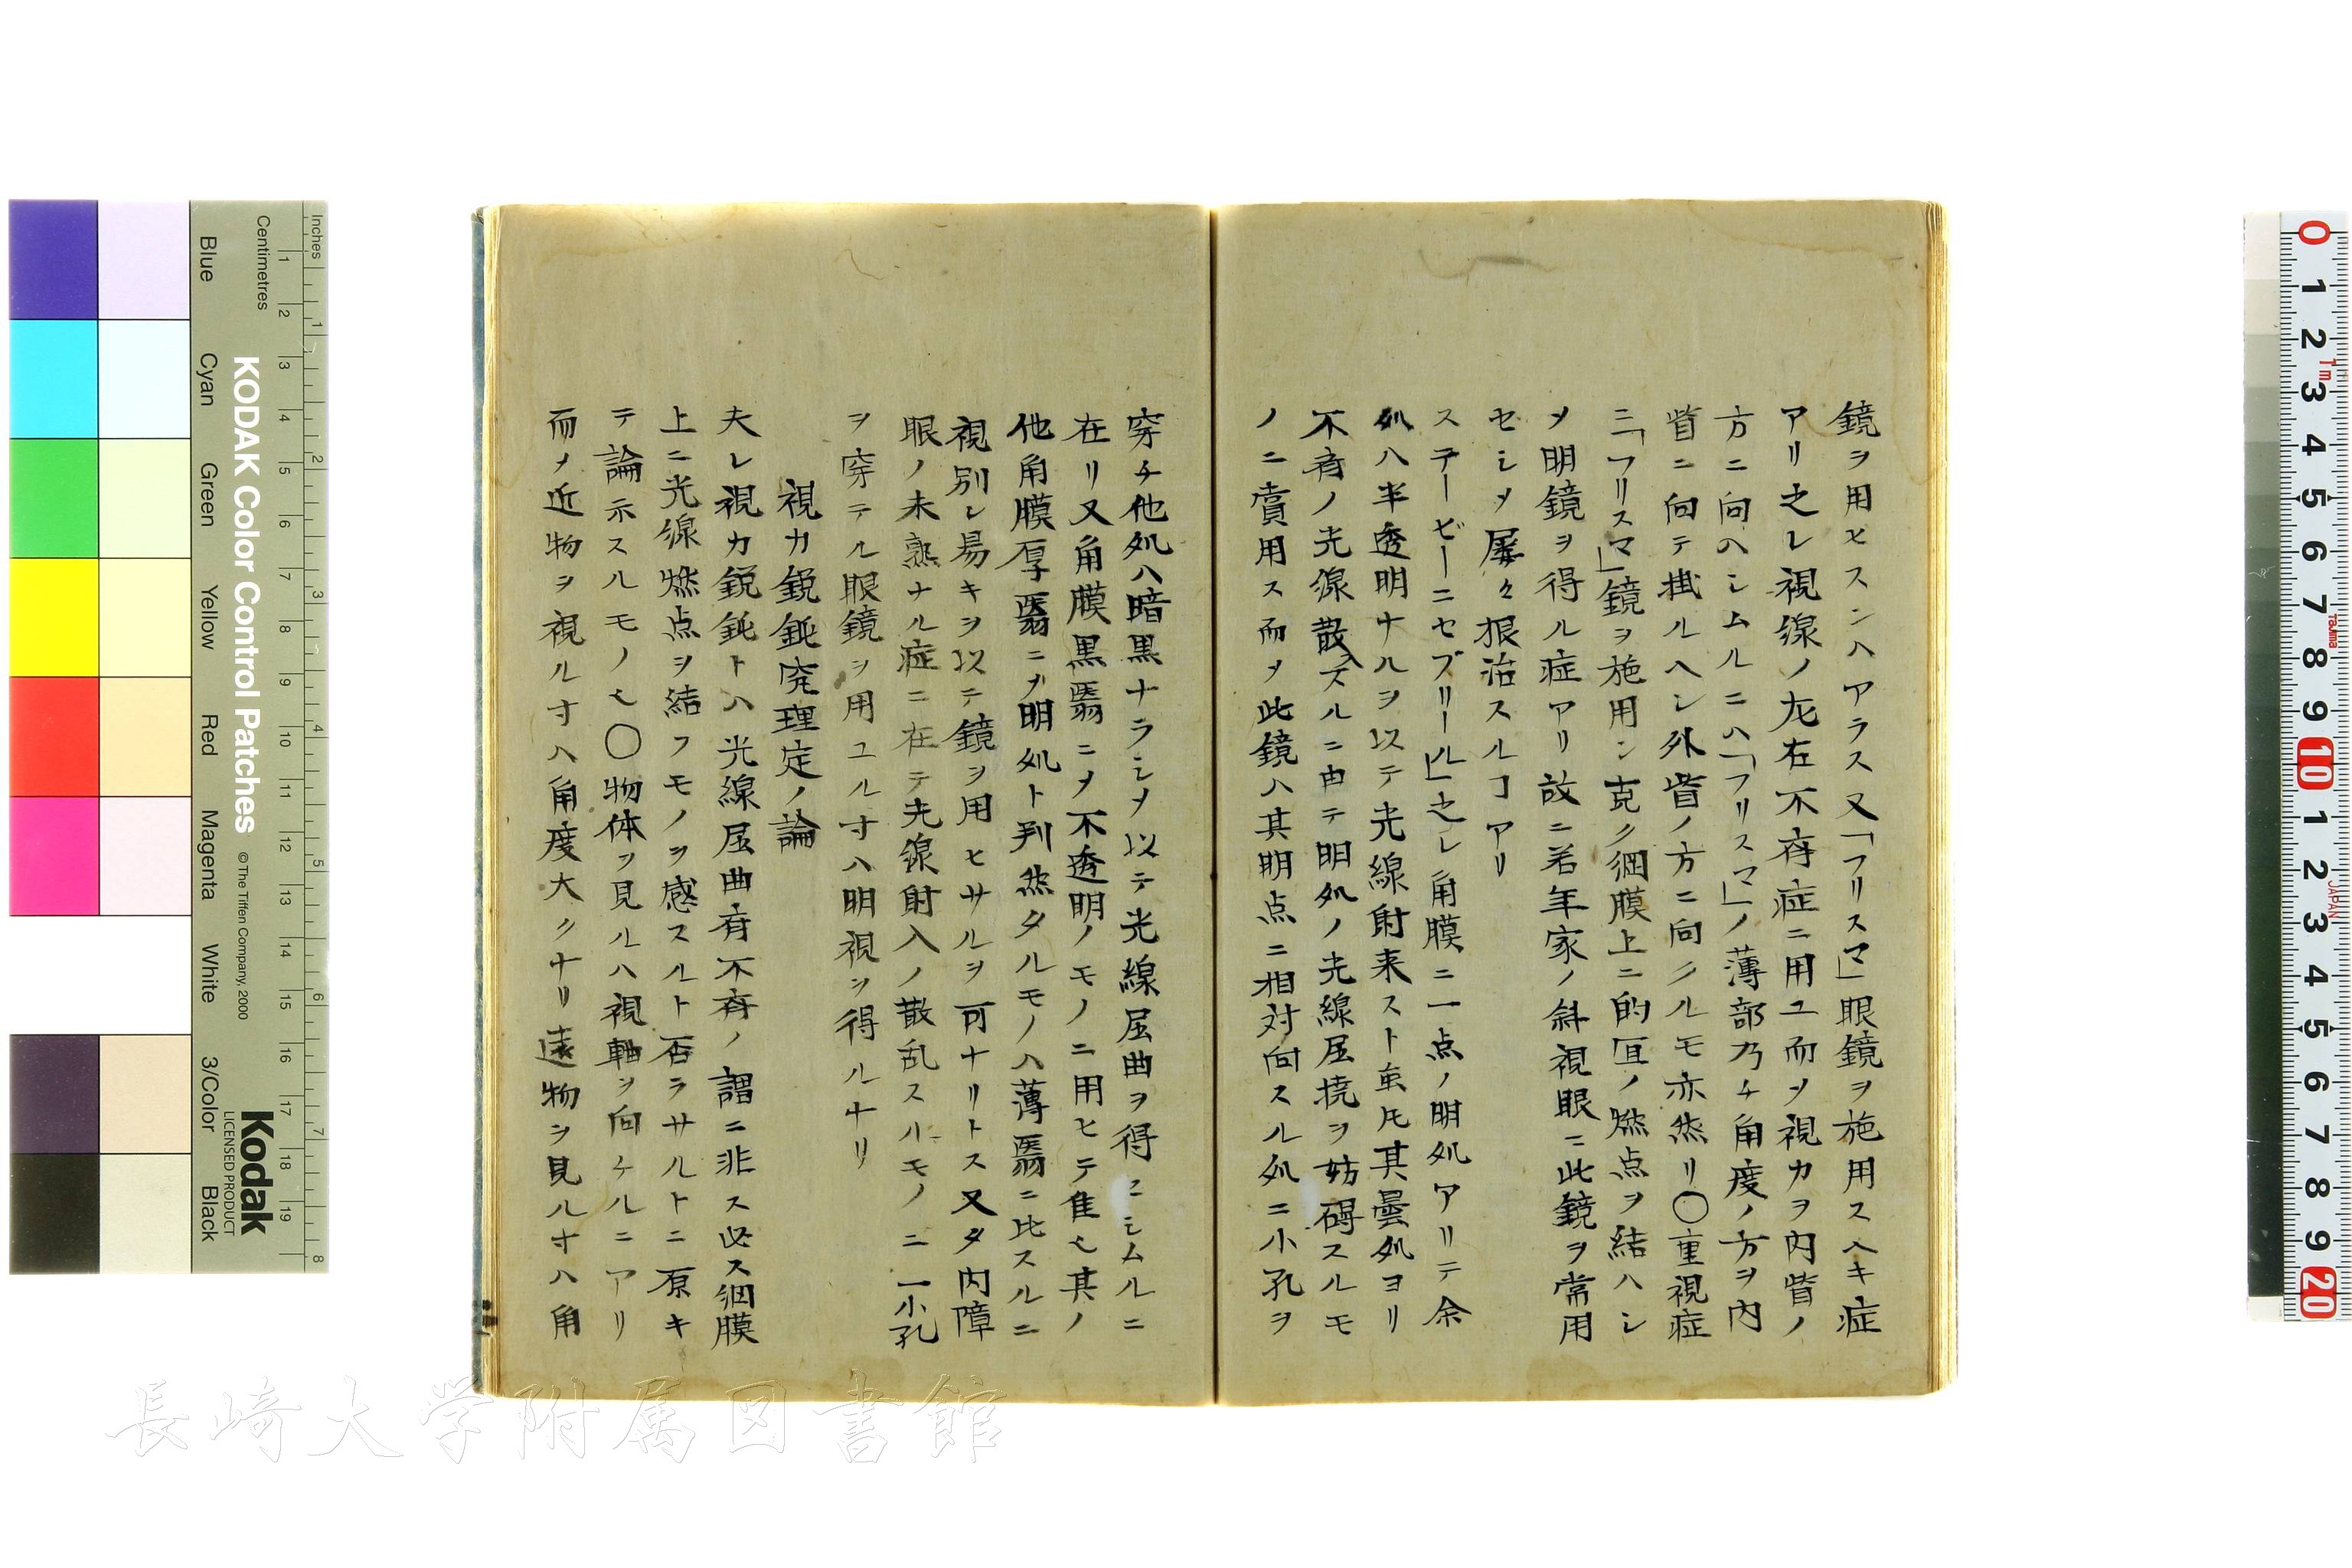 鏡ヲ用ヒスンハアラス又「フリスマ」眼鏡ヲ施用スヘキ症
アリ之レ視線ノ左右不斉症ニ用ユ而ヲ視力ヲ内眥ノ
方ニ向ヘシムルニハ「フリスマ」ノ薄部乃チ角度ノ方ヲ内
眥ニ向テ掛ルヘシ外眥ノ方ニ向クルモ亦然リ〇重視症
ニ「フリスマ」鏡ヲ施用シ克ク網膜上ニ的宜ノ燃点ヲ結ハシ
メ明鏡ヲ得ル症アリ故ニ若年家ノ斜視眼ニ此鏡ヲ常用
セシメ屡々根治スルヿアリ
ステービーニセブリール」之レ角膜ニ一点ノ明処アリテ余
処ハ半透明ナルヲ以テ光線射来スト虽圧其曇処ヨリ
不斉ノ光線散スルニ由テ明処ノ光線屈撓ヲ妨碍スルモ
ノニ賞用ス而メ此鏡ハ其明点ニ相対向スル処ニ小孔ヲ
穿チ他処ハ暗黒ナラシメ以テ光線屈曲ヲ得ニシムルニ
在リ又角膜黒翳ニメ不透明ノモノニ用ヒテ隹七其ノ
他角膜厚翳ニメ明処ト判然タルモノハ薄翳ニ比スルニ
視別レ易キヲ以テ鏡ヲ用ヒサルヲ可ナリトス又タ内障
眼ノ未熟ナル症ニ在テ光線射入ノ散乱スルモノニ一小孔
ヲ穿テル眼鏡ヲ用ユル寸ハ明視ヲ得ルナリ
視力鋭鈍究理定ノ論
夫レ視力鋭鈍トハ光線屈曲斉不斉ノ謂ニ非ス必ス網膜
上ニ光線燃点ヲ結フモノヲ感スルト否ラサルトニ原キ
テ論示スルモノ也〇物体ヲ見ルハ視軸ヲ向ケルニアリ
而メ近物ヲ視ル寸ハ角度大クナリ遠物ヲ見ル寸ハ角
KODAK Color Control Patches
© The Tiffen Company, 2000
Kodak
LICENSED PRODUCT
Inches
Centimetres
Blue Cyan Green Yellow Red Magenta White 3/Color Black
長崎大学附属図書館